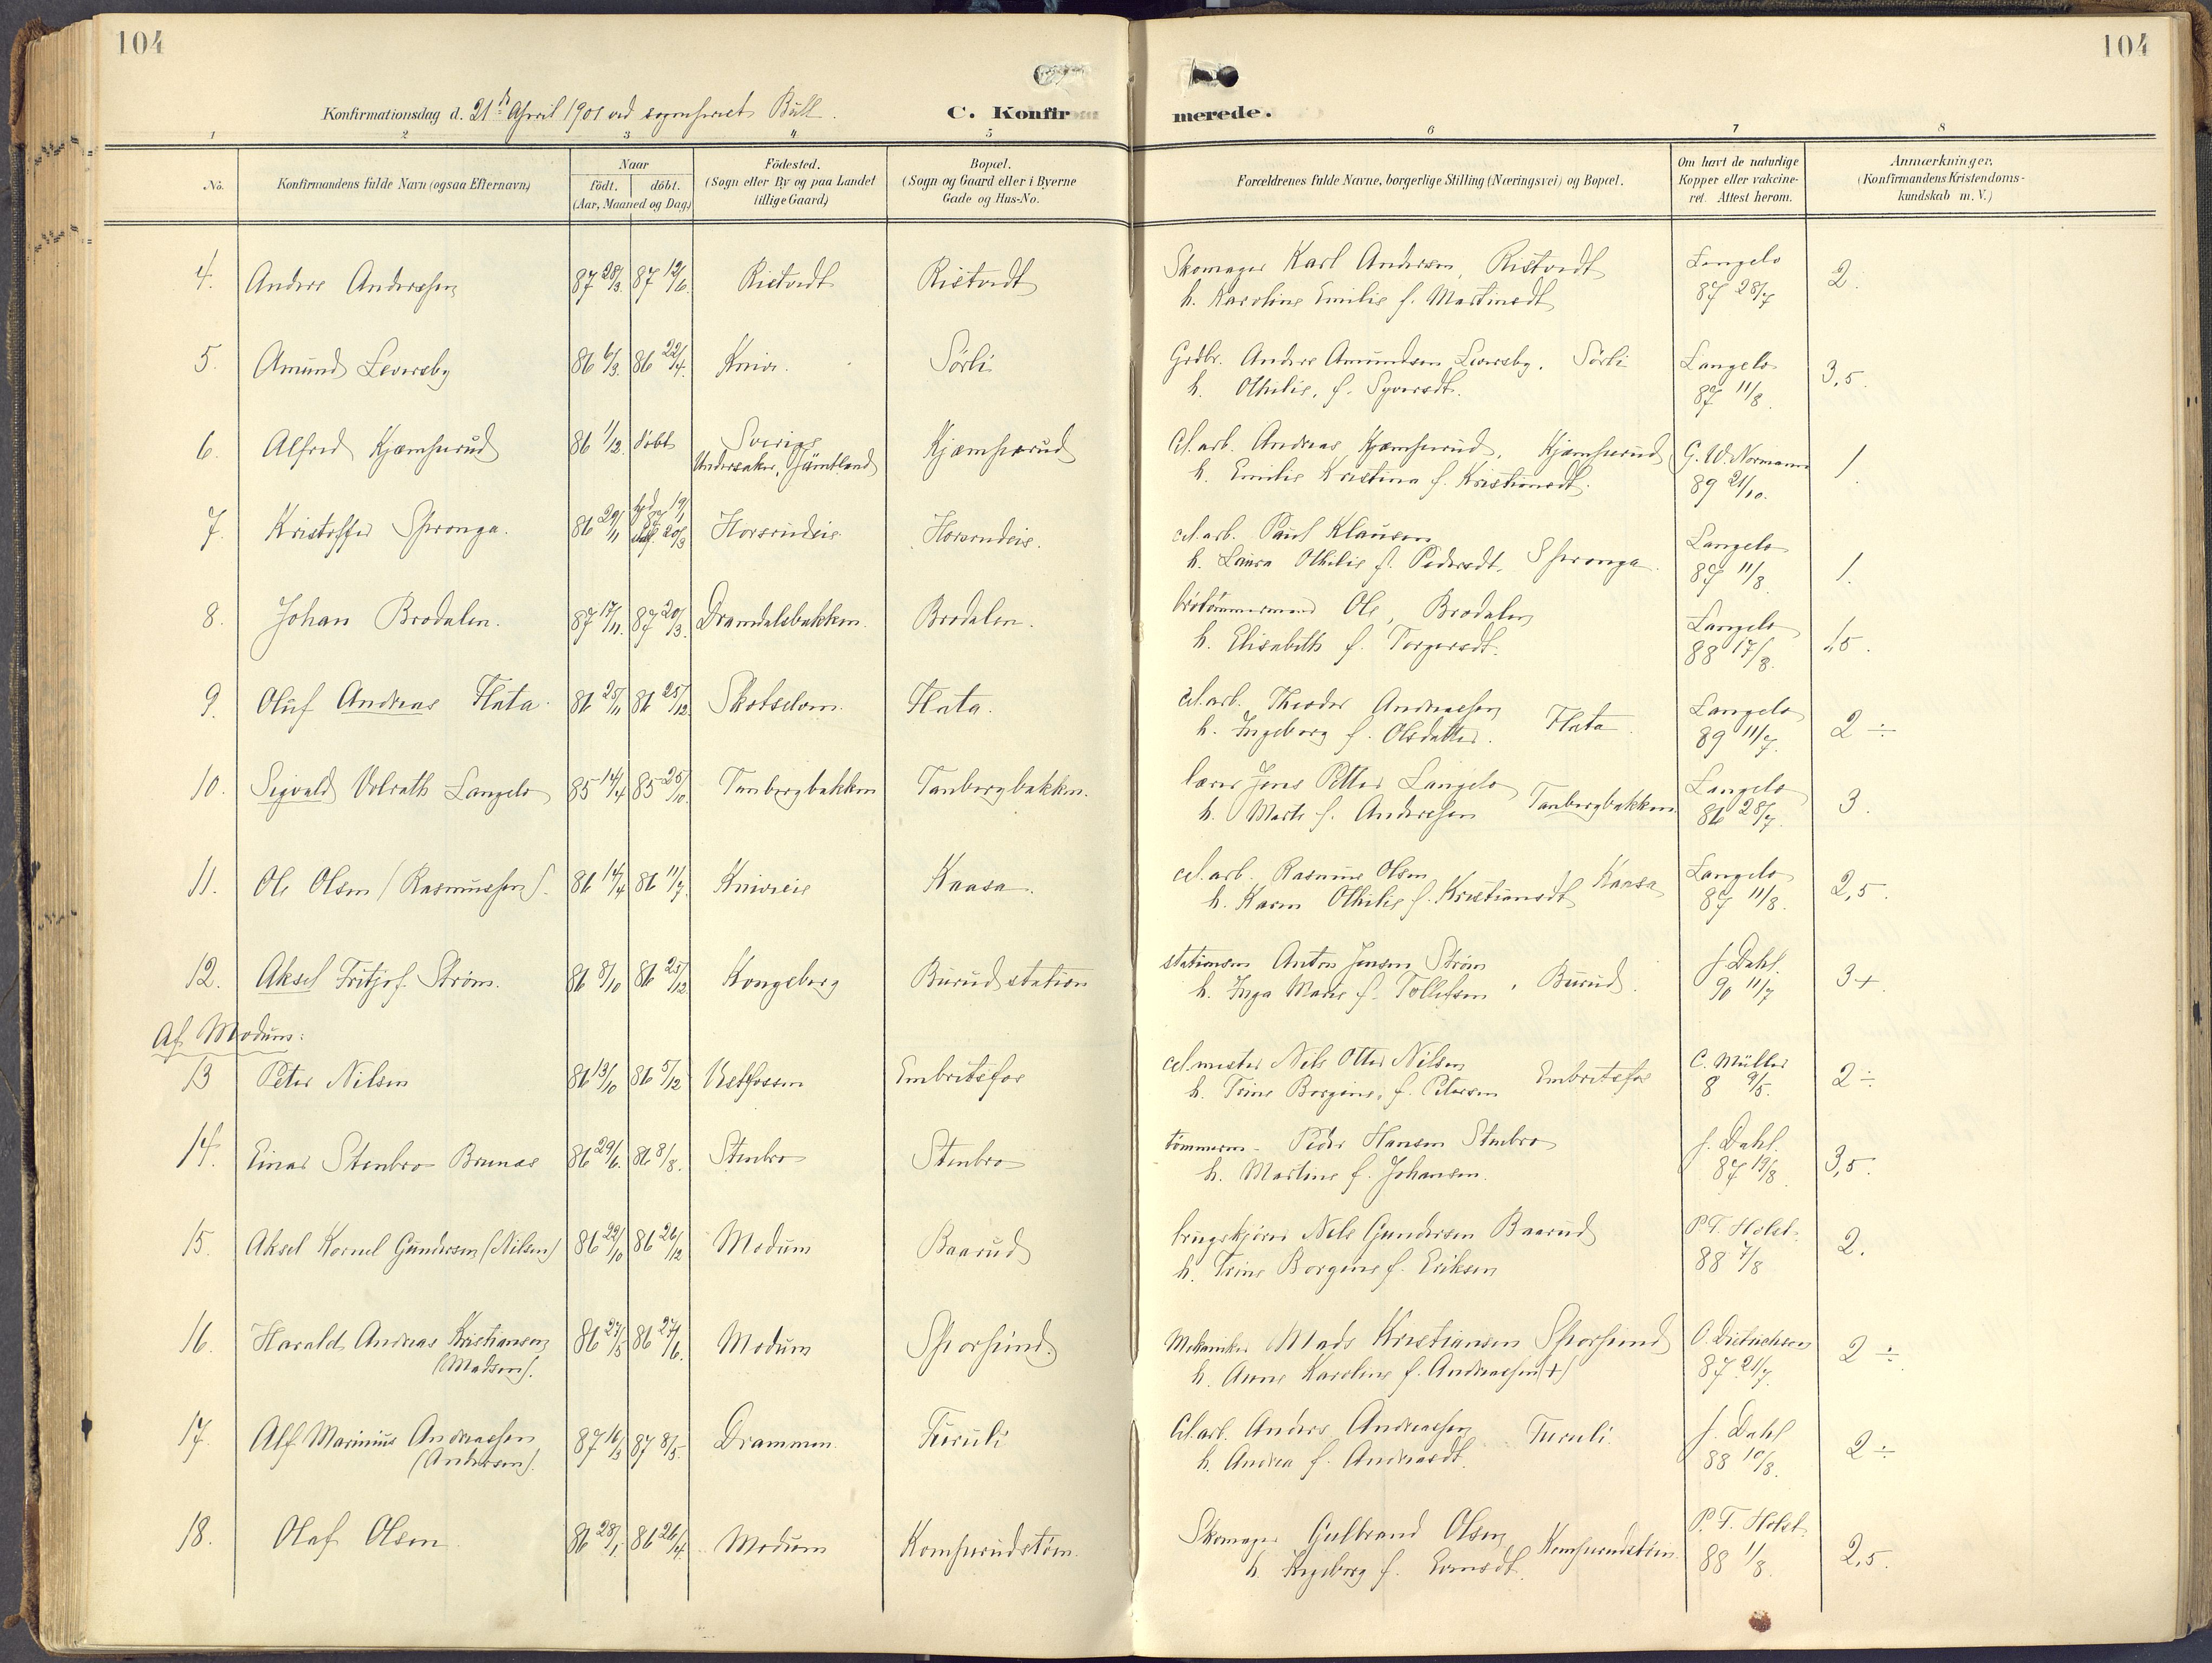 104
104
Konfirmationsdag d. 21de April 1901 ved sognepræst Bull.
C. Konfirmerede.
1 2 3 4 5 6 7 8
No.
Konfirmandens fulde Navn (ogsaa Efternavn)
Naar
födt. döbt.
(Aar, Maaned og Dag)
Födested.
(Sogn eller By og paa Landet
tillige Gaard)
Bopæl.
(Sogn og Gaard eller i Byerne
Gade og Hus-No.
Forældrenes fulde Navne, borgerlige Stilling (Næringsvei) og Bopæl.
Om havt de naturlige
Kopper eller vakcine-
ret. Attest herom.
Anmærkninger.
(Konfirmandens Kristendoms-
kundskab m. V.)
4. Anders Anderssen 87 28/3. 87 12/6. Ristvedt Ristvedt Skomager Karl Andersen, Ristvedt Langelo 2.
h. Karoline Emilie f. Martinsdt 87 28/7
5. Amund Leversby 86 6/3. 86 22/4. Knive. Sörli Grdbr. Anders Amundsen Leversby. Sörli Langelo 3,5.
h. Othilie, f. Syversdt. 87 11/8.
6. Alfred Kjæmperud 86 1/12. döbt Sverige Kjæmperud Cel.arb. Andreas Kjæmperud, Kjæmperud G. W. Normann 1.
Undersaker, Jämtland h. Emilie Kristina f. Kristiansdt. 89 21/10.
7. Kristoffer Spronga. 86 29/11 19/1 20/3 Horsrudeie. Horsrudeie. cel.arb. Paul Klausen Langelo 1.
h. Laura Othilie f. Pedersdt. Spronga. 87 11/8.
8. Johan Brodalen. 87 17/11. 87 20/3. Dramdalsbakken. Brodalen. Ole, Brodalen Langelo 1,5.
h. Elisabeth f. Torgersdt. 88 17/8.
9. Oluf Andreas Flata. 86 25/11 86 25/12. Skotselven. Flata. cel.arb. Theodor Andreassen Langelo 2 ÷
h. Ingeborg f. Olsdatter. Flata. 89 11/7.
10. Sigvald Volrath Langelo 85 14/4 85 25/10. Tanbergbakken Tanbergbakken. lærer Jens Petter Langelo Langelo 3.
h. Marte f. Anderssen Tanbergbakken 86 28/7.
11. Ole Olsen (Rasmussen). 86 14/4 86 11/7. Kniveeie Kaasa. cel.arb. Rasmus Olsen Langelo 2,5.
h. Karen Othilie f. Kristiansdt Kaasa 87 11/8.
12. Aksel Fritjof Ström. 86 8/10 86 25/12. Kongsberg Burud station stationsm Anton Jensen Ström J. Dahl. 3+.
h. Inga Marie f. Tollefsen, Burud. 90 11/7
Af Modum:
13 Peter Nilsen 86 13/10 86 5/12 Vestfossen Embretsfos cel.mester Nils Otter Nilsen C. Müller 2 ÷.
h. Trine Borgine, f. Petersen Embretsfos 8 9/5.
14. Einar Stenbro Brunæs 86 29/6. 86 8/8. Stenbro Stenbro tömmerm. Peder Hansen Stenbro J. Dahl. 3,5.
h. Martine f. Johansen. 87 19/8
15. Aksel Kornel Gundersen (Nilsen) 86 22/10 86 26/12 Modum Baarud Nils Gundersen Baarud P.T. Holst. 2.
h. Trine Borgine f. Eriksen 88 7/8
16. Harald Andreas Kristiansen 86 27/5 86 27/6. Modum Sporpind Mekaniker Mads Kristiansen Sporpind O. Dietrichson 2 ÷.
(Madsen). h. Anne Karoline f. Andreassen (+) 87 21/7.
17. Alf Marinius Andreassen 87 16/3 87 8/5. Drammen. Furuli Cel.arb. Anders Andreassen Furuli. J. Dahl 2 ÷
(Andersen). h. Andrea f. Andreasdt. 88 10/8.
18. Olaf Olsen. 86 28/1. 86 26/4. Modum Komperudstöen. Skomager Gulbrand Olsen P. T. Holst. 2,5.
h. Ingeborg f. Komperudstöen. 88 1/8.